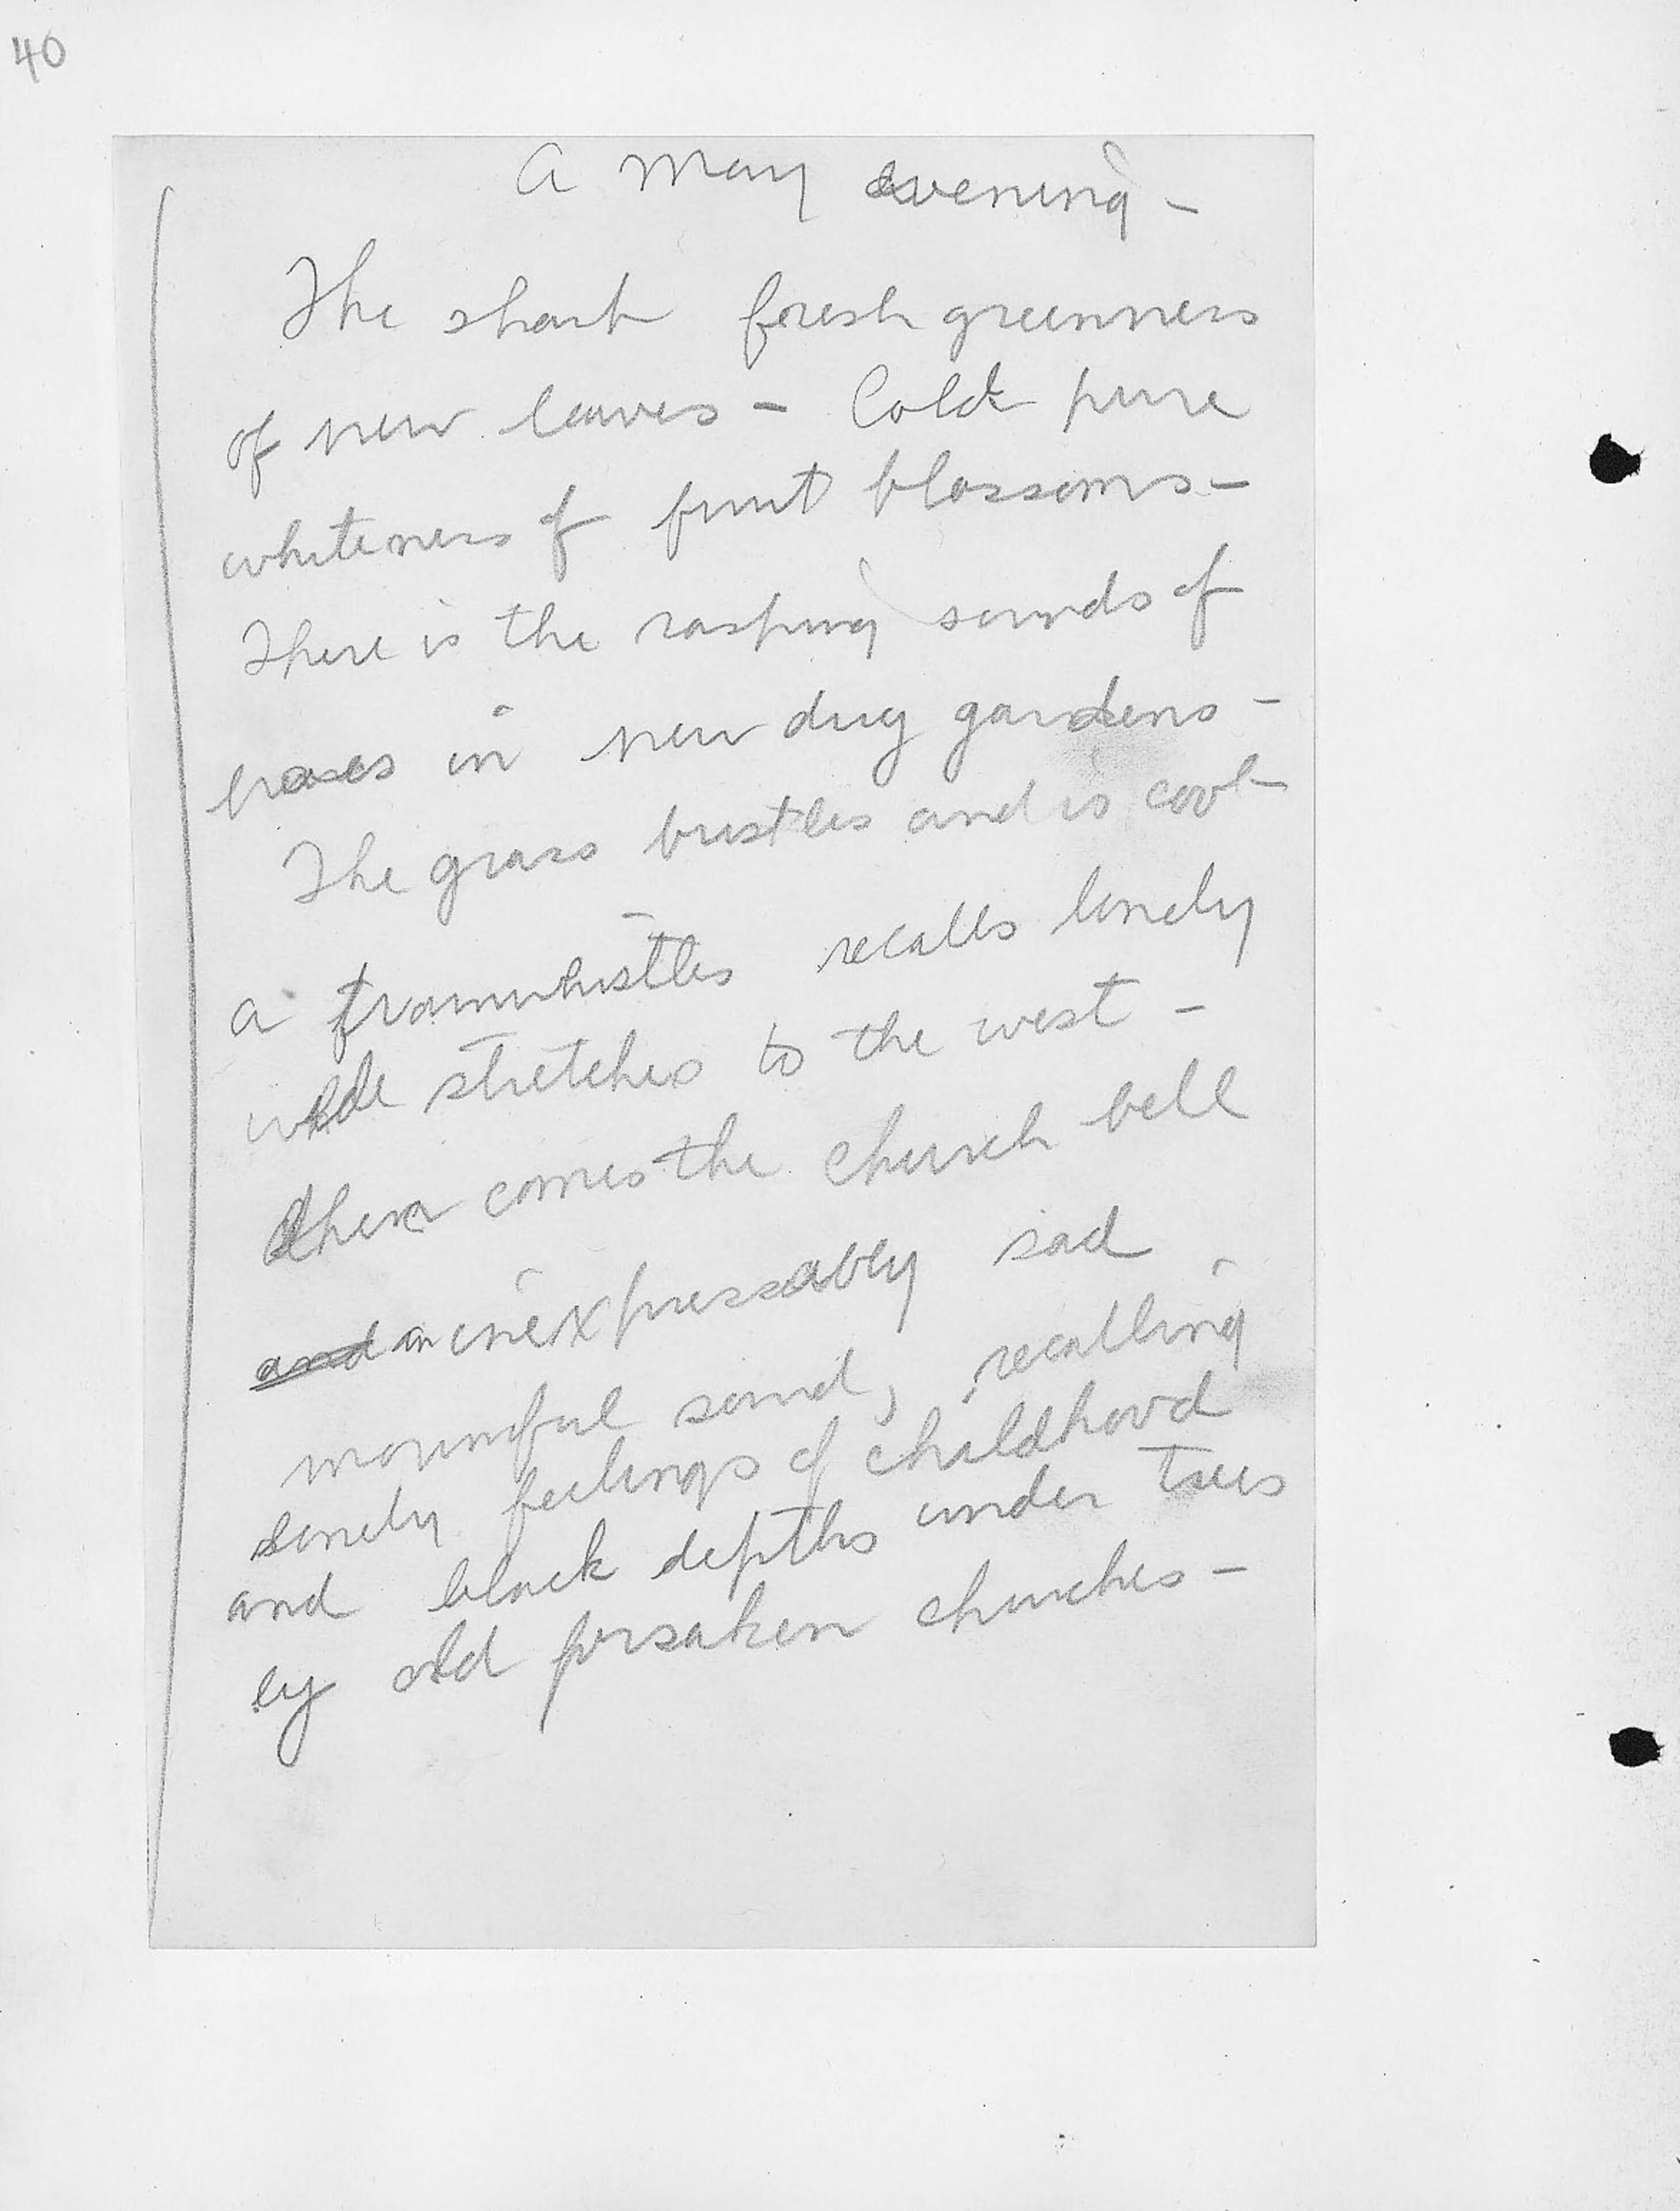 40
A May evening –
The sharp fresh greenness
of new leaves – Cold pure
whiteness of fruit blossoms –
There is the rasping sounds of
hoes in new dug gardens –
The grass bristles and is cool
A trainwhistles recalls lonely
wide stretches to the west –
then comes the church bell
and an inexpressably sad
mournful sound, recalling
lonely feelings of childhood
and black depths under trees
by old forsaken churches –